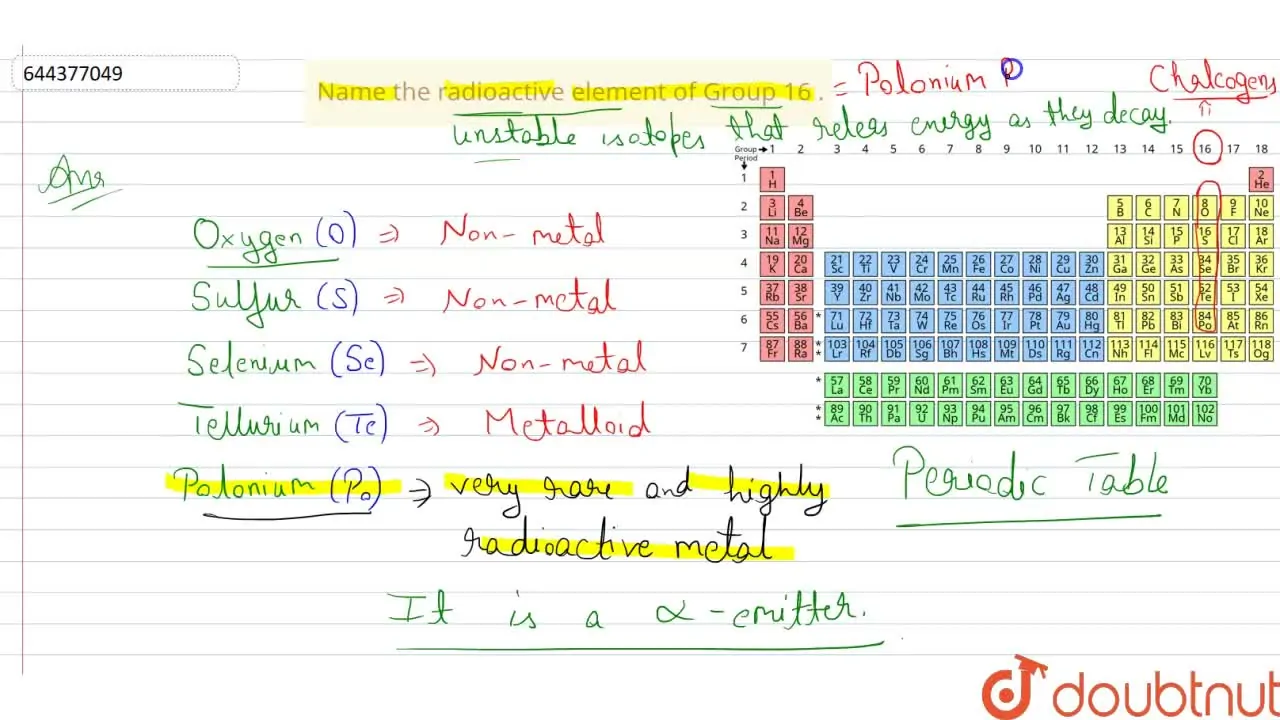 644377049
Name the radioactive element of Group 16 . = Polonium Po
Chalcogens
unstable isotopes that reless energy as they decay.
Ans
Oxygen (O) ⇒ Non-metal
Sulfur (S) ⇒ Non-metal
Selenium (Se) ⇒ Non-metal
Tellurium (Te) ⇒ Metalloid
Polonium (Po) ⇒ very rare and highly
radioactive metal
It is a α-emitter.
Group 1 2 3 4 5 6 7 8 9 10 11 12 13 14 15 16 17 18
Period
1 1 H 2 He
2 3 Li 4 Be 5 B 6 C 7 N 8 O 9 F 10 Ne
3 11 Na 12 Mg 13 Al 14 Si 15 P 16 S 17 Cl 18 Ar
4 19 K 20 Ca 21 Sc 22 Ti 23 V 24 Cr 25 Mn 26 Fe 27 Co 28 Ni 29 Cu 30 Zn 31 Ga 32 Ge 33 As 34 Se 35 Br 36 Kr
5 37 Rb 38 Sr 39 Y 40 Zr 41 Nb 42 Mo 43 Tc 44 Ru 45 Rh 46 Pd 47 Ag 48 Cd 49 In 50 Sn 51 Sb 52 Te 53 I 54 Xe
6 55 Cs 56 Ba * 71 Lu 72 Hf 73 Ta 74 W 75 Re 76 Os 77 Ir 78 Pt 79 Au 80 Hg 81 Tl 82 Pb 83 Bi 84 Po 85 At 86 Rn
7 87 Fr 88 Ra ** 103 Lr 104 Rf 105 Db 106 Sg 107 Bh 108 Hs 109 Mt 110 Ds 111 Rg 112 Cn 113 Nh 114 Fl 115 Mc 116 Lv 117 Ts 118 Og
* 57 La 58 Ce 59 Pr 60 Nd 61 Pm 62 Sm 63 Eu 64 Gd 65 Tb 66 Dy 67 Ho 68 Er 69 Tm 70 Yb
** 89 Ac 90 Th 91 Pa 92 U 93 Np 94 Pu 95 Am 96 Cm 97 Bk 98 Cf 99 Es 100 Fm 101 Md 102 No
Periodic Table
doubtnut